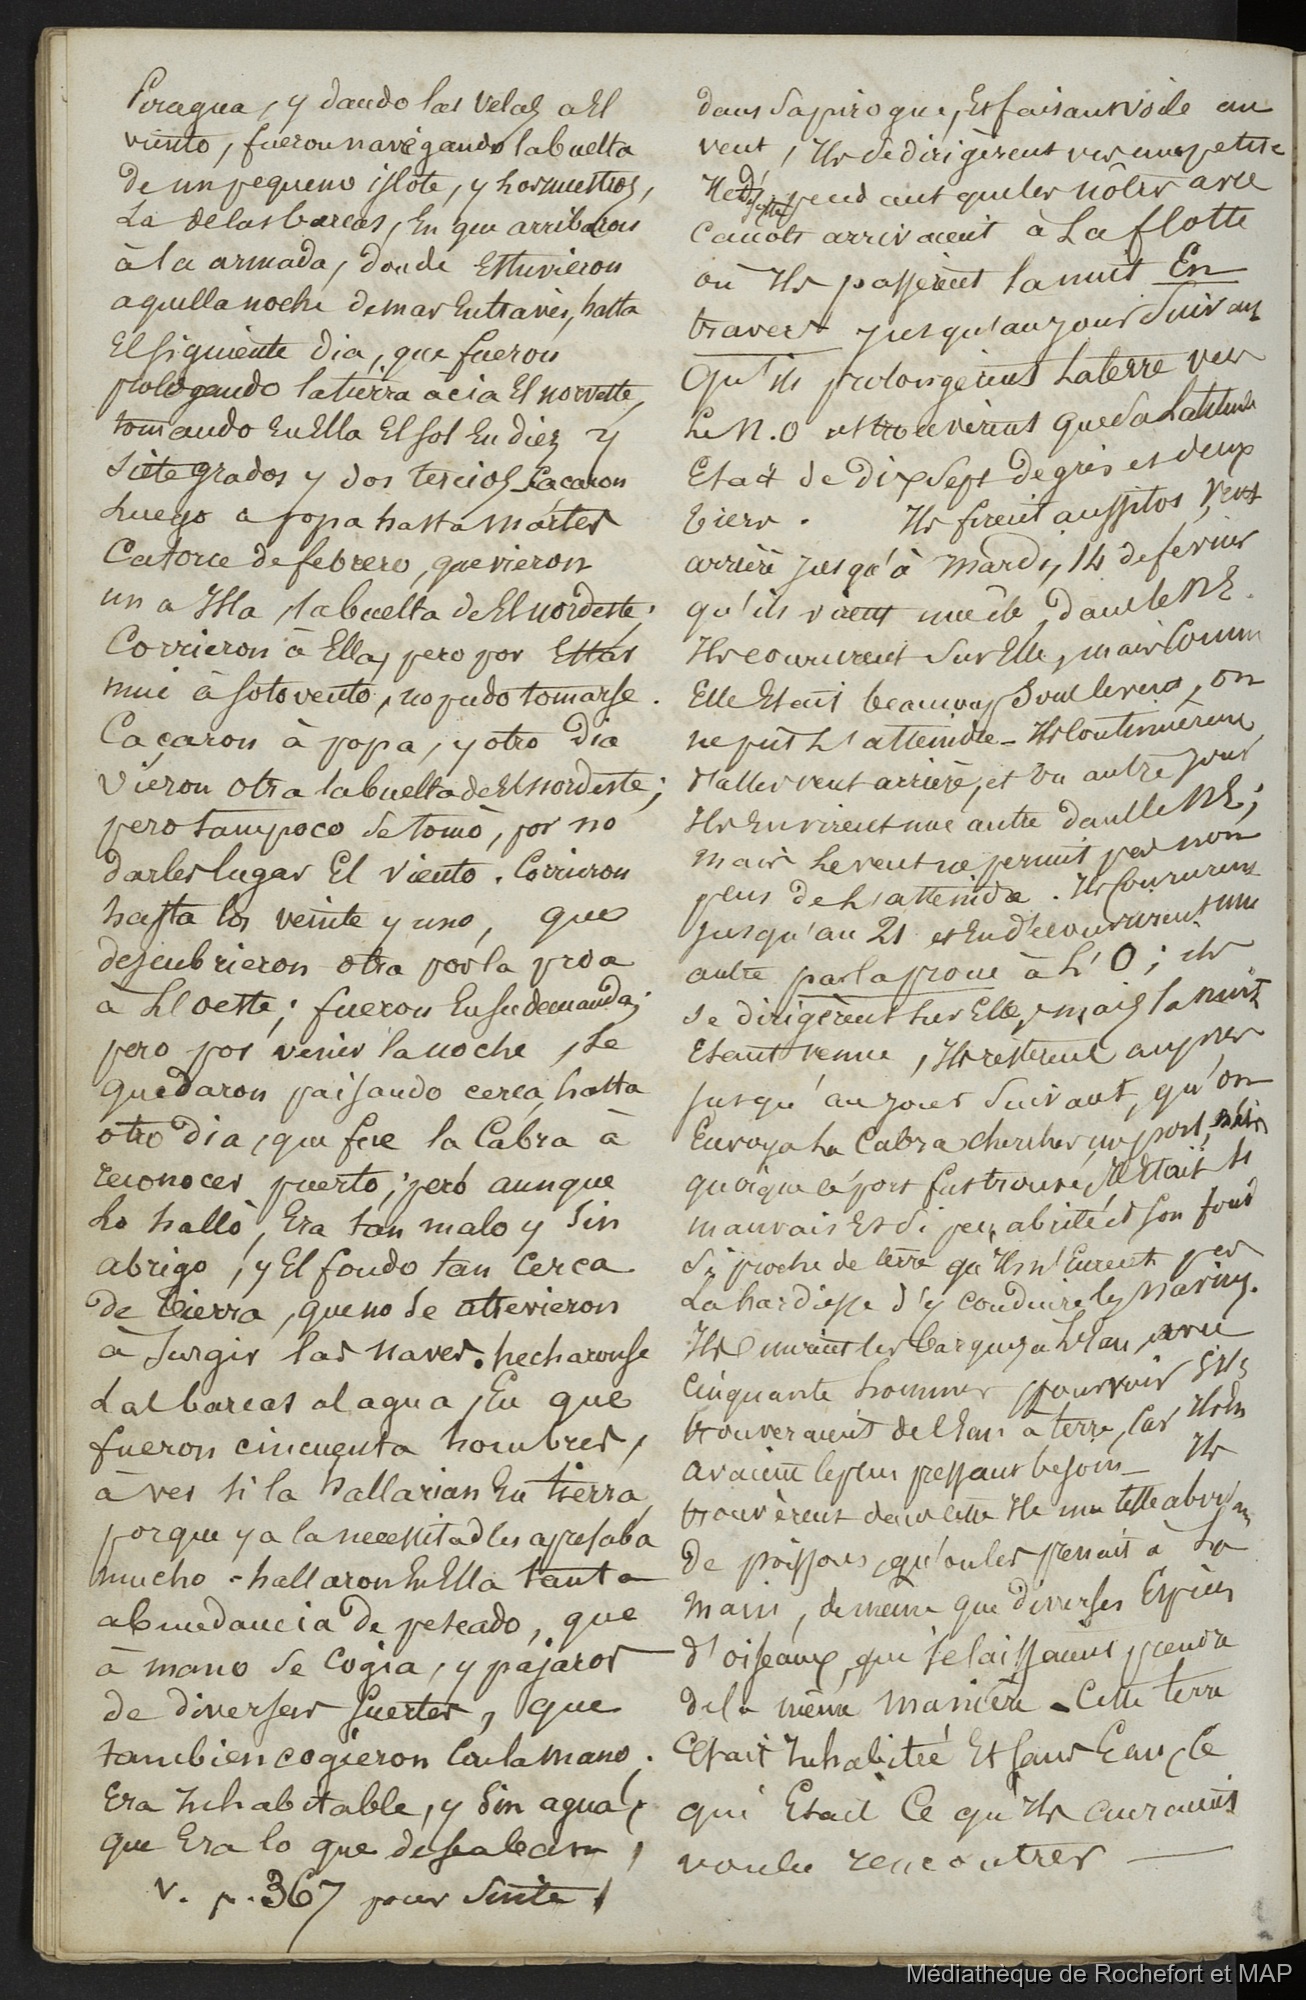 Piragua, y dando las velas a El
viento, fueron navégando la buelta
de un pequeno islote, y los nuestros,
La de las barcas, En que arribaron
à la armada, donde Estuvieron
aquella noche de mar En travès, hasta
El siguiente dia, que fueron
prolongando la tierra àcia El norveste,
tomando En Ella El sol En diez y
siete grados y dos tercios. Caçaron
Luego a popa hasta Mártes
Catorce de febrero, que vieron
un a Isla, la buelta de El nordeste;
Corrieron à Ella, pero por Estar
mui à sotovento, no pudo tomarse.
Caçaron à popa, y otro dia
vieron otra la buelta de El nordeste;
pero tampoco se tomò, por no
darles lugar El viento. Corrieron
hasta los veinte y uno, que
descubrieron otra por la proa
à El oeste; fueron En su demanda;
pero por venir la noche, se
quedaron paisando cerca, hasta
otro dia, que fue la Cabra à
reconocer puerto; però aunque
Lo hallò, Era tan malo y sin
abrigo, y El fondo tan cerca
de tierra, que no se atrevieron
à surgir las naves. hecharonse
Las barcas al agua, En que
fueron cincuenta hombres,
à ver si la hallarian En tierra,
porque ya la necessitad les apresaba
mucho - hallaron En Ella tanta
abundancia de pescado, que
à mano se cogia, y pajaros
de diversas suertes, que
tambien cogieron con la mano.
Era Inhabitable, y sin agua,
que Era lo que deseaban,
V. p. 367 pour suite
dans sa pirogue, Et faisant voile au
vent, Ils se dirigèrent vers une petite
Ile, pendant que les nôtres avec
canots arrivaient à La flotte
où Ils passèrent la nuit En
travers jusqu'au jour suivant
Qu'ils prolongèrent La terre vers
Le N.O et trouvèrent que sa Latitude
Etait de Dix Sept Degrés et deux
tiers. Ils firent aussitos vent
arrière jusqu'à Mardi, 14 de fevrier
qu'ils virent une ile, dans le NE.
Ils coururent sur Elle, mais Comme
Elle Etait beaucoup sous le vent, on
ne put L'atteindre - Ils continuèrent
d'aller vent arrière, et un autre jour
Ils En virent une autre dans le NE;
mais Le vent ne permit pas non
plus de L'atteindre. Ils Coururent
jusqu'au 21 et En découvrirent une
autre par la proue à L'O; ils
se dirigèrent sur Elle, mais la nuit
Etant venue, Ils restèrent auprès
jusqu'au jour suivant, qu'on
Envoya La Cabra chercher un port, mais
quoique le port fut trouvé, Il Etait si
mauvais Et si peu abrité et son fond
si proche de terre qu'Ils n'Eurent pas
La hardiesse d'y conduire les Navires.
Ils mirent les barques à L'Eau, avec
cinquante hommes pour voir s'Ils
trouveraient de l'Eau à terre, Car Ils En
avaient le plus pressant besoin - Ils
trouvèrent dans cette Ile une telle
de poissons, qu'on les prenait à La
main, de même que diverses Espèces
d'oiseaux, qui se laissaient prendre
de la même manière - Cette terre
Etait Inhabitée Et sans Eau, Ce
qui Etait Ce qu'Ils auraient
voulu rencontrer
Médiathèque de Rochefort et MAP